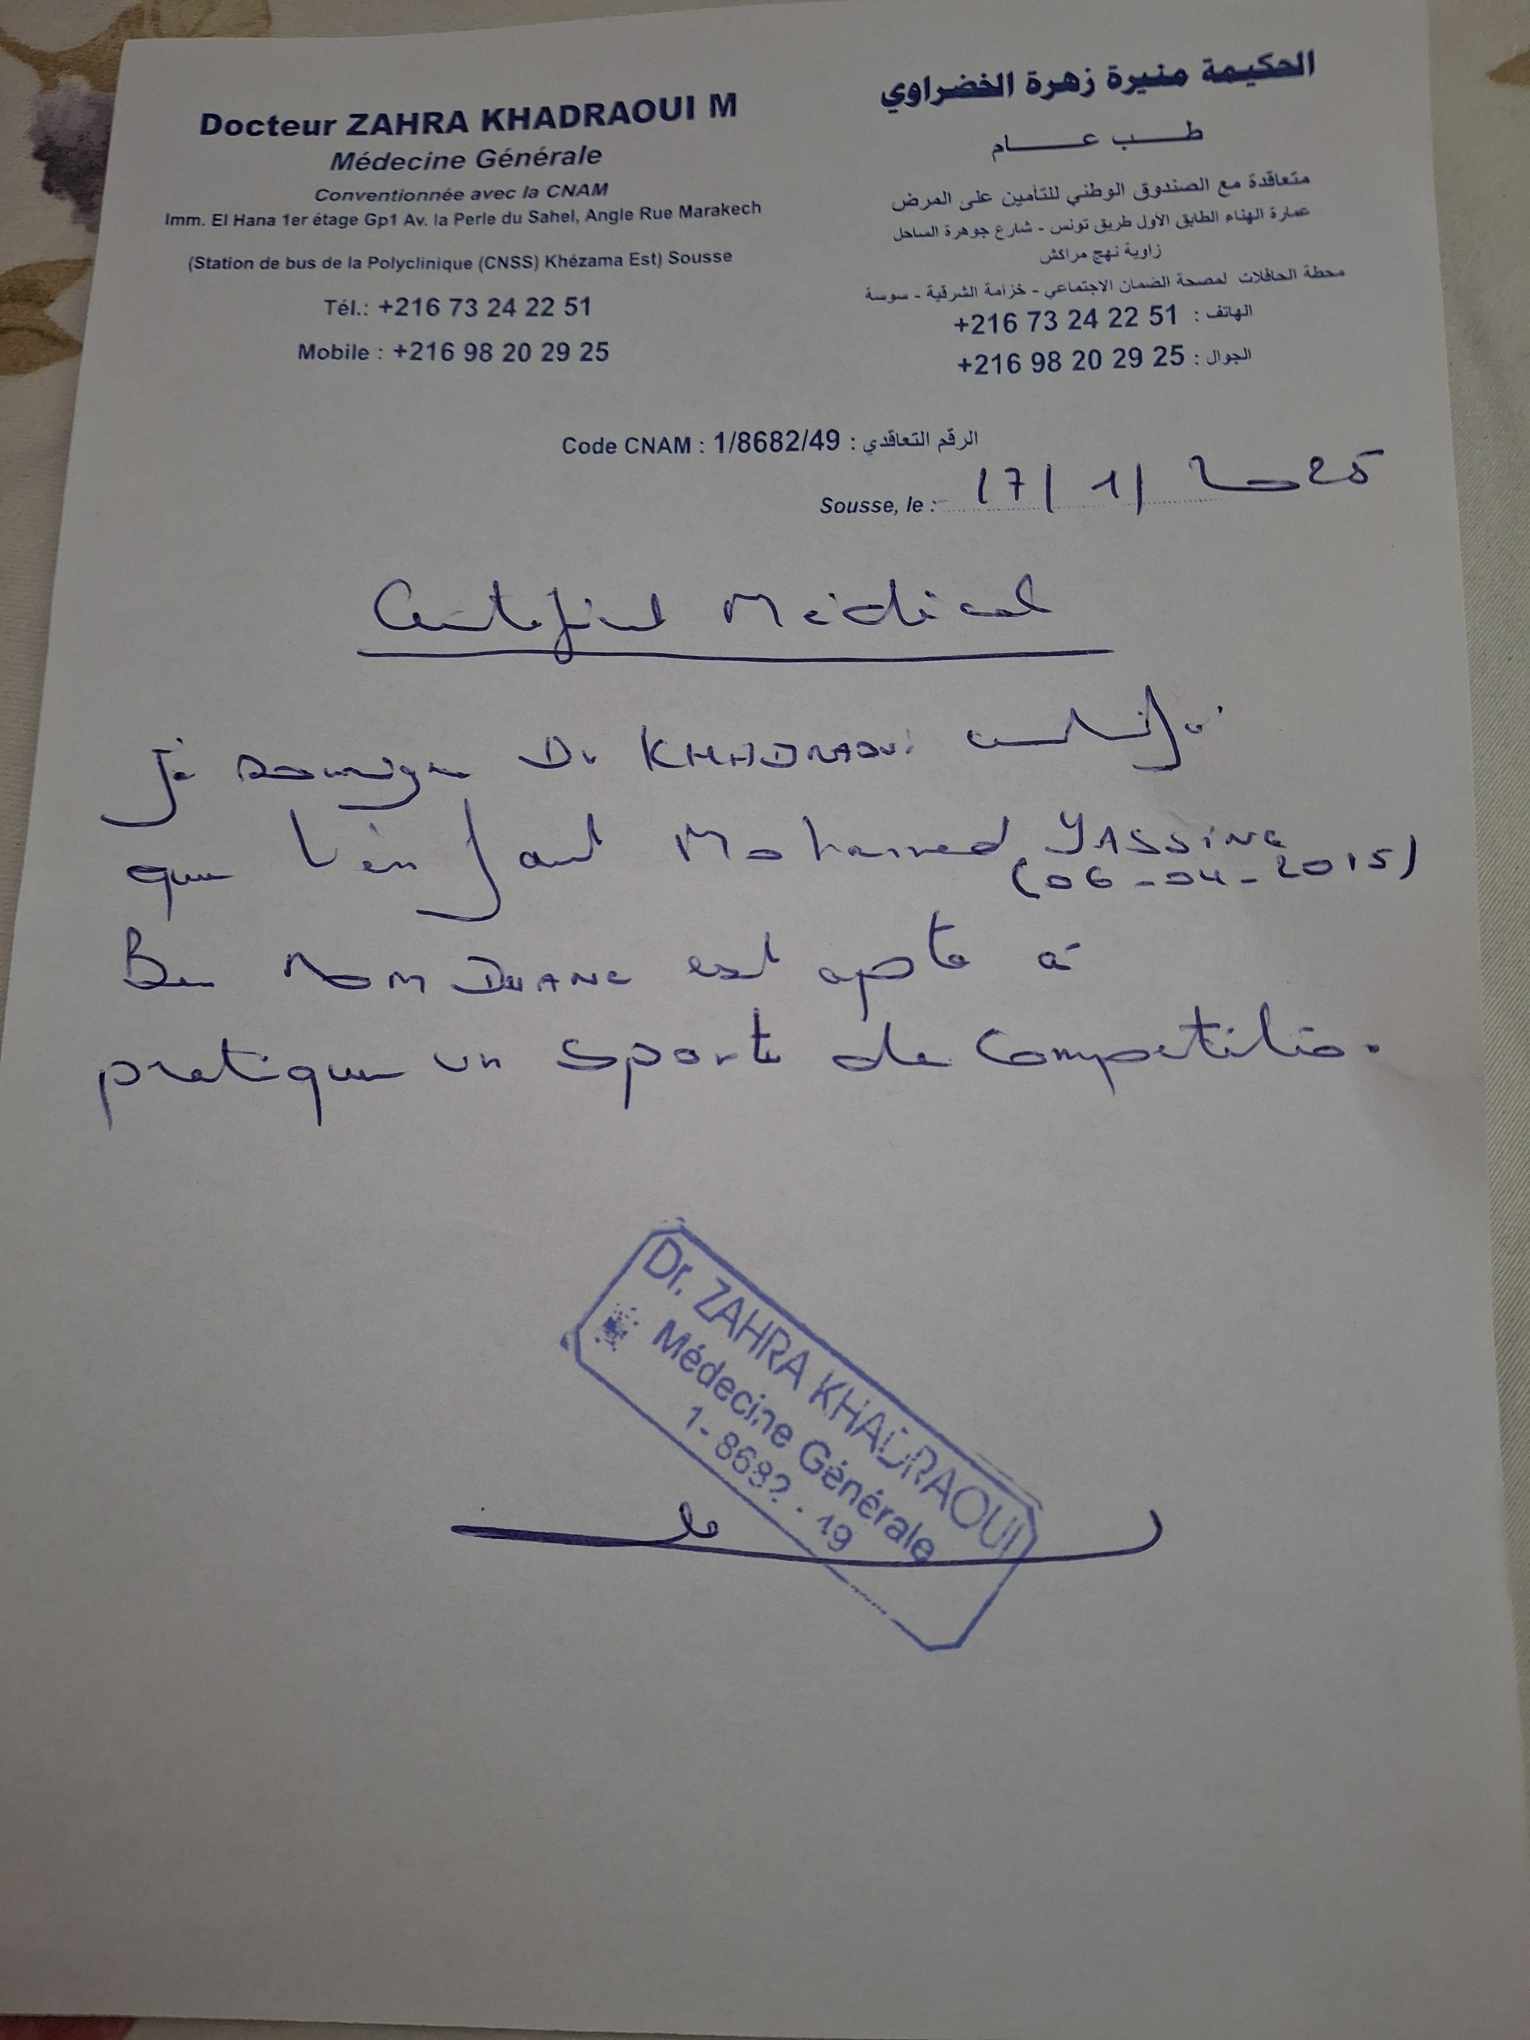 Docteur ZAHRA KHADRAOUI M
Médecine Générale
Conventionnée avec la CNAM
Imm. El Hana 1er étage Gp1 Av. la Perle du Sahel, Angle Rue Marakech
(Station de bus de la Polyclinique (CNSS) Khézama Est) Sousse
Tél.: +216 73 24 22 51
Mobile : +216 98 20 29 25
الحكيمة منيرة زهرة الخضراوي
طب عام
متعاقدة مع الصندوق الوطني للتأمين على المرض
عمارة الهناء الطابق الأول طريق تونس - شارع جوهرة الساحل
زاوية نهج مراكش
محطة الحافلات لمصحة الضمان الاجتماعي - خزامة الشرقية - سوسة
الهاتف : +216 73 24 22 51
الجوال : +216 98 20 29 25
Code CNAM : 1/8682/49 : الرقم التعاقدي
Sousse, le : 17/1/2025
Certificat Médical
Je soussigné Dr KHADRAOUI certifie
que l'enfant Mohamed YASSINE
(06-04-2015)
Ben est apte à
pratiquer un sport de compétition.
Dr. ZAHRA KHADRAOUI
Médecine Générale
1-8682-49